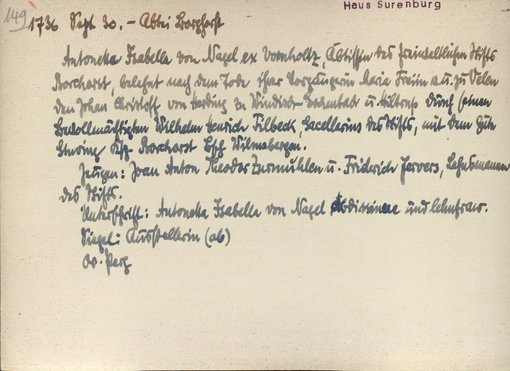 Haus Surenburg
149
1736 Sept. 30. - Abtei Borghorst
Antonetta Isabella von Nagel ex Vornholtz, Äbtissin des freiweltlichen Stifts
Borchorst, belehnt nach dem Tode ihrer Vorgängerin Marie Freiin v. zu Velen
den Johan Christoff von Herding zu u. Hiltrup durch seinen
Bevollmächtigten Wilhelm Henrich Filbeck, des Stifts, mit dem Gute
Ksp. Borchorst Bsch. Wilmsbergen.
Zeugen: Joan Anton Theodor Zurmühlen u. Friderich Hervers, Lehnsmannen
des Stifts.
Unterschrift: Antonetta Isabella von Nagel und Lehnfraw.
Siegel: Ausstellerin (ab)
Or. Perg